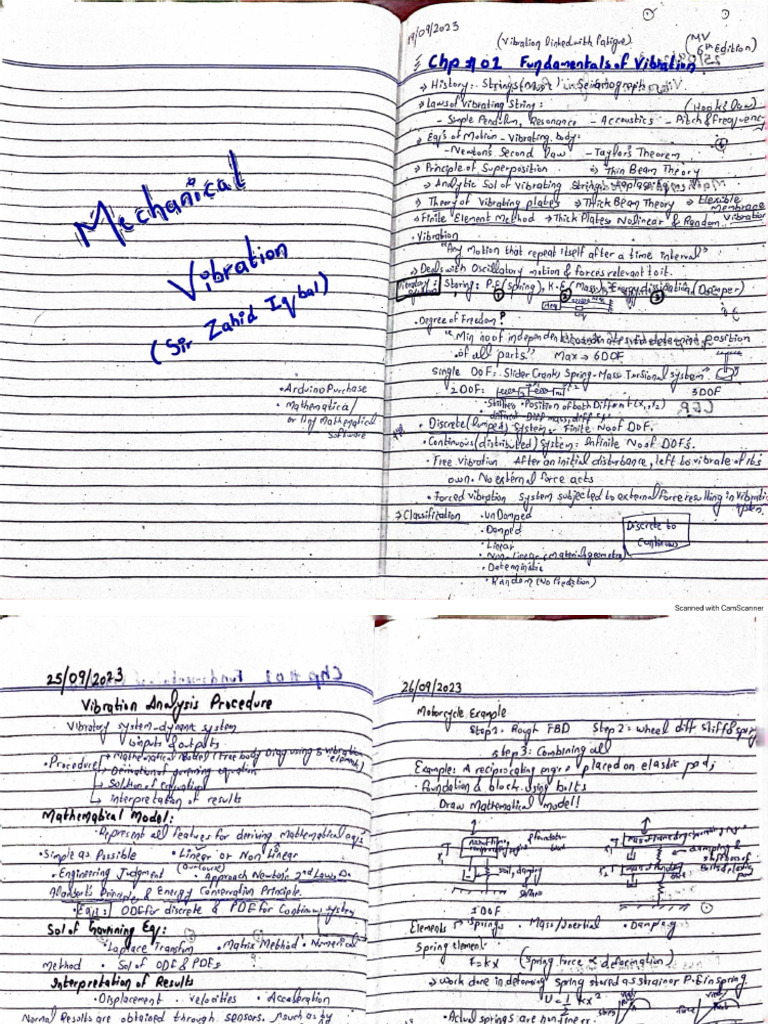 Mechanical
Vibration
(Sir Zahid Iqbal)
• Arduino Purchase
• Mathematica/
or Any Mathematical
Software
19/09/2023
(Vibration linked with Fatigue)
(MV
6th Edition)
Chp # 01 Fundamentals of Vibration
→ History:- Strings (Music) Seismograph
→ Laws of Vibrating String: (Hooks law)
- Simple Pendulum, Resonance - Accoustics - Pitch & Frequency
→ Eq's of Motion - Vibrating body:
- Newton's Second law - Taylor's Theorem
→ Principle of Superposition → Thin Beam Theory
→ Analytic Sol of Vibrating String
→ Theory of Vibrating plates → Thick Beam Theory → Flexible membrane
→ Finite Element Method → Thick Plates Nolinear & Random Vibration
• Vibration
"Any Motion that repeat itself after a time interval"
→ Deals with Oscillatory motion & forces relevant to it.
Vibratory System: Storing: P.E (Spring), K.E (Mass), Energy dissipation (Damper)
① ② ③
• Degree of Freedom?
"Min no of independent position
of all parts" Max → 6 DOF
Single DoF: Slider Crank, Spring-Mass Torsional system
2 DOF: 3 DOF
• Position of both Different (x₁, x₂)
• Discrete (lumped) System:- Finite No of DOF.
• Continuous (distributed) System: Infinite No of DOFs.
• Free Vibration After an initial disturbance, left to vibrate of its
own. No external force acts
• Forced vibration System subjected to external force resulting in Vibration
System.
→ Classification • unDamped
• Damped
• Linear
• Non-linear (material, geometric)
• Deterministic
• Random (No Prediction)
Discrete to
Continous
Scanned with CamScanner
25/09/2023
Vibration Analysis Procedure
Vibratory system - dynamic system
↳ inputs & outputs
• Procedure → Mathematical Model (Free body Diag using 3 vibration elements)
→ Derivation of governing equation
→ Solution of equation
→ interpretation of results
Mathematical Model:
• Represent all features for deriving mathematical eq's
• Simple as Possible • Linear or Non Linear
• Engineering Judgment • Approach Newton's 2nd Law, De
Alambert's Principle & Energy Conservation Principle.
• Eq's: ODE for discrete & PDE for Continous system
Sol of Governing Eq:
• Laplace Transfrm • Matrix Method • Numerical
method • Sol of ODE & PDEs
Interpretation of Results
• Displacement • velocities • Acceleration
Normal Results are obtained through sensors, such as by
26/09/2023
Motorcycle Example
Step 1. Rough FBD Step 2: wheel diff stiff & spring
Step 3: Combining all
Example: A reciprocating engine placed on elastic pads
• Foundation & block using bolts
Draw Mathematical model!
soil, damping
1 DOF
Elements → • Springs • Mass/Inertial • Damping
Spring element
F = kx (spring force ∝ deformation)
→ Work done in deforming spring stored as strain or P.E in spring
U = ½ kx²
• Actual springs are nonlinear